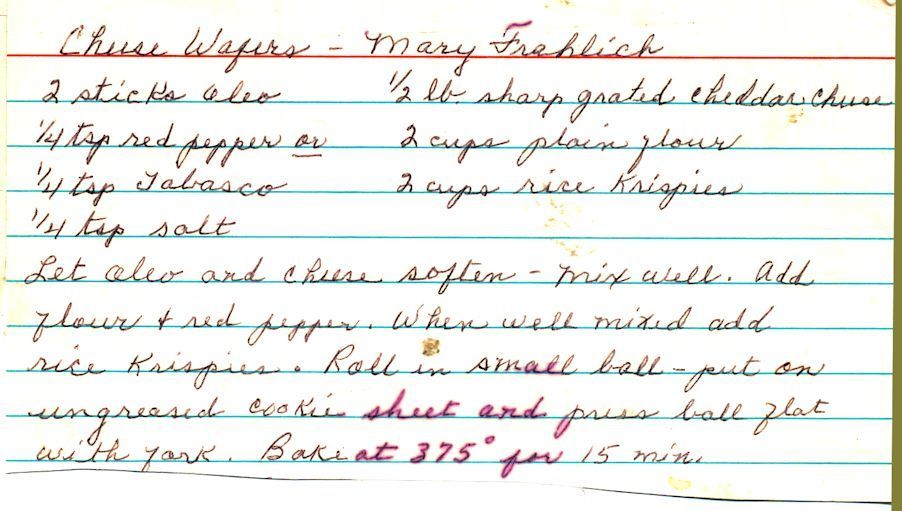 Cheese Wafers - Mary Frahlich
2 sticks oleo 1/2 lb. sharp grated cheddar cheese
1/4 tsp red pepper or 2 cups plain flour
1/4 tsp Tabasco 2 cups rice Krispies
1/4 tsp salt
Let oleo and cheese soften - mix well. Add
flour + red pepper. When well mixed add
rice Krispies. Roll in small ball - put on
ungreased cookie sheet and press ball flat
with fork. Bake at 375° for 15 min.